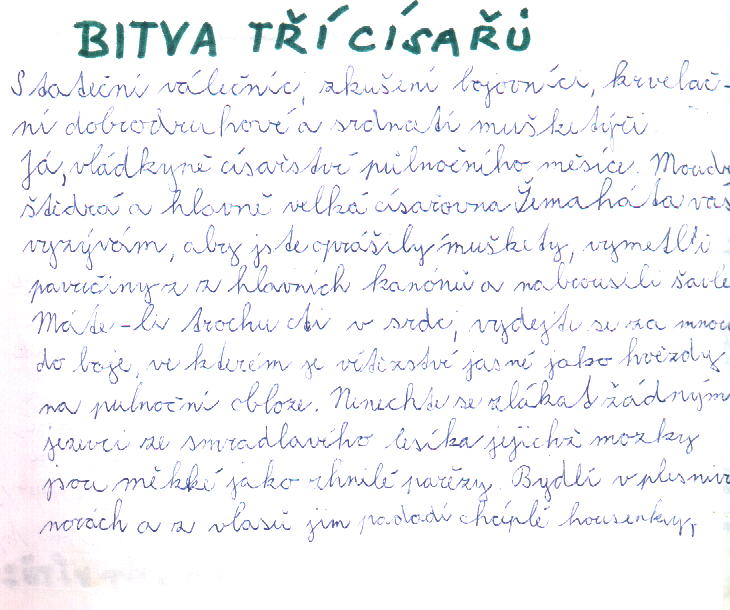 BITVA TŘÍ CÍSAŘŮ
Stateční válečníci, zkušení bojovníci, krvelač-
ní dobrodruhové a srdnatí mušketýři.
Já, vládkyně císařství půlnočního měsíce. Moudr
štědrá a hlavně velká císařovna Žemaháta vás
vyzývám, aby jste oprášily muškety, vymetli
pavučiny z z hlavních kanónů a nabrousili šavle
Máte-li trochu cti v srdci, vydejte se za mnou
do boje, ve kterém je vítězství jasné jako hvězdy
na půlnoční obloze. Nenechte se zlákat žádným
jezevci ze smradlavího lesíka jejichž mozky
jsou měkké jako shnilé pařezy. Bydlí v plesniv
norách a z vlasů jim padadí chcíplé housenky,